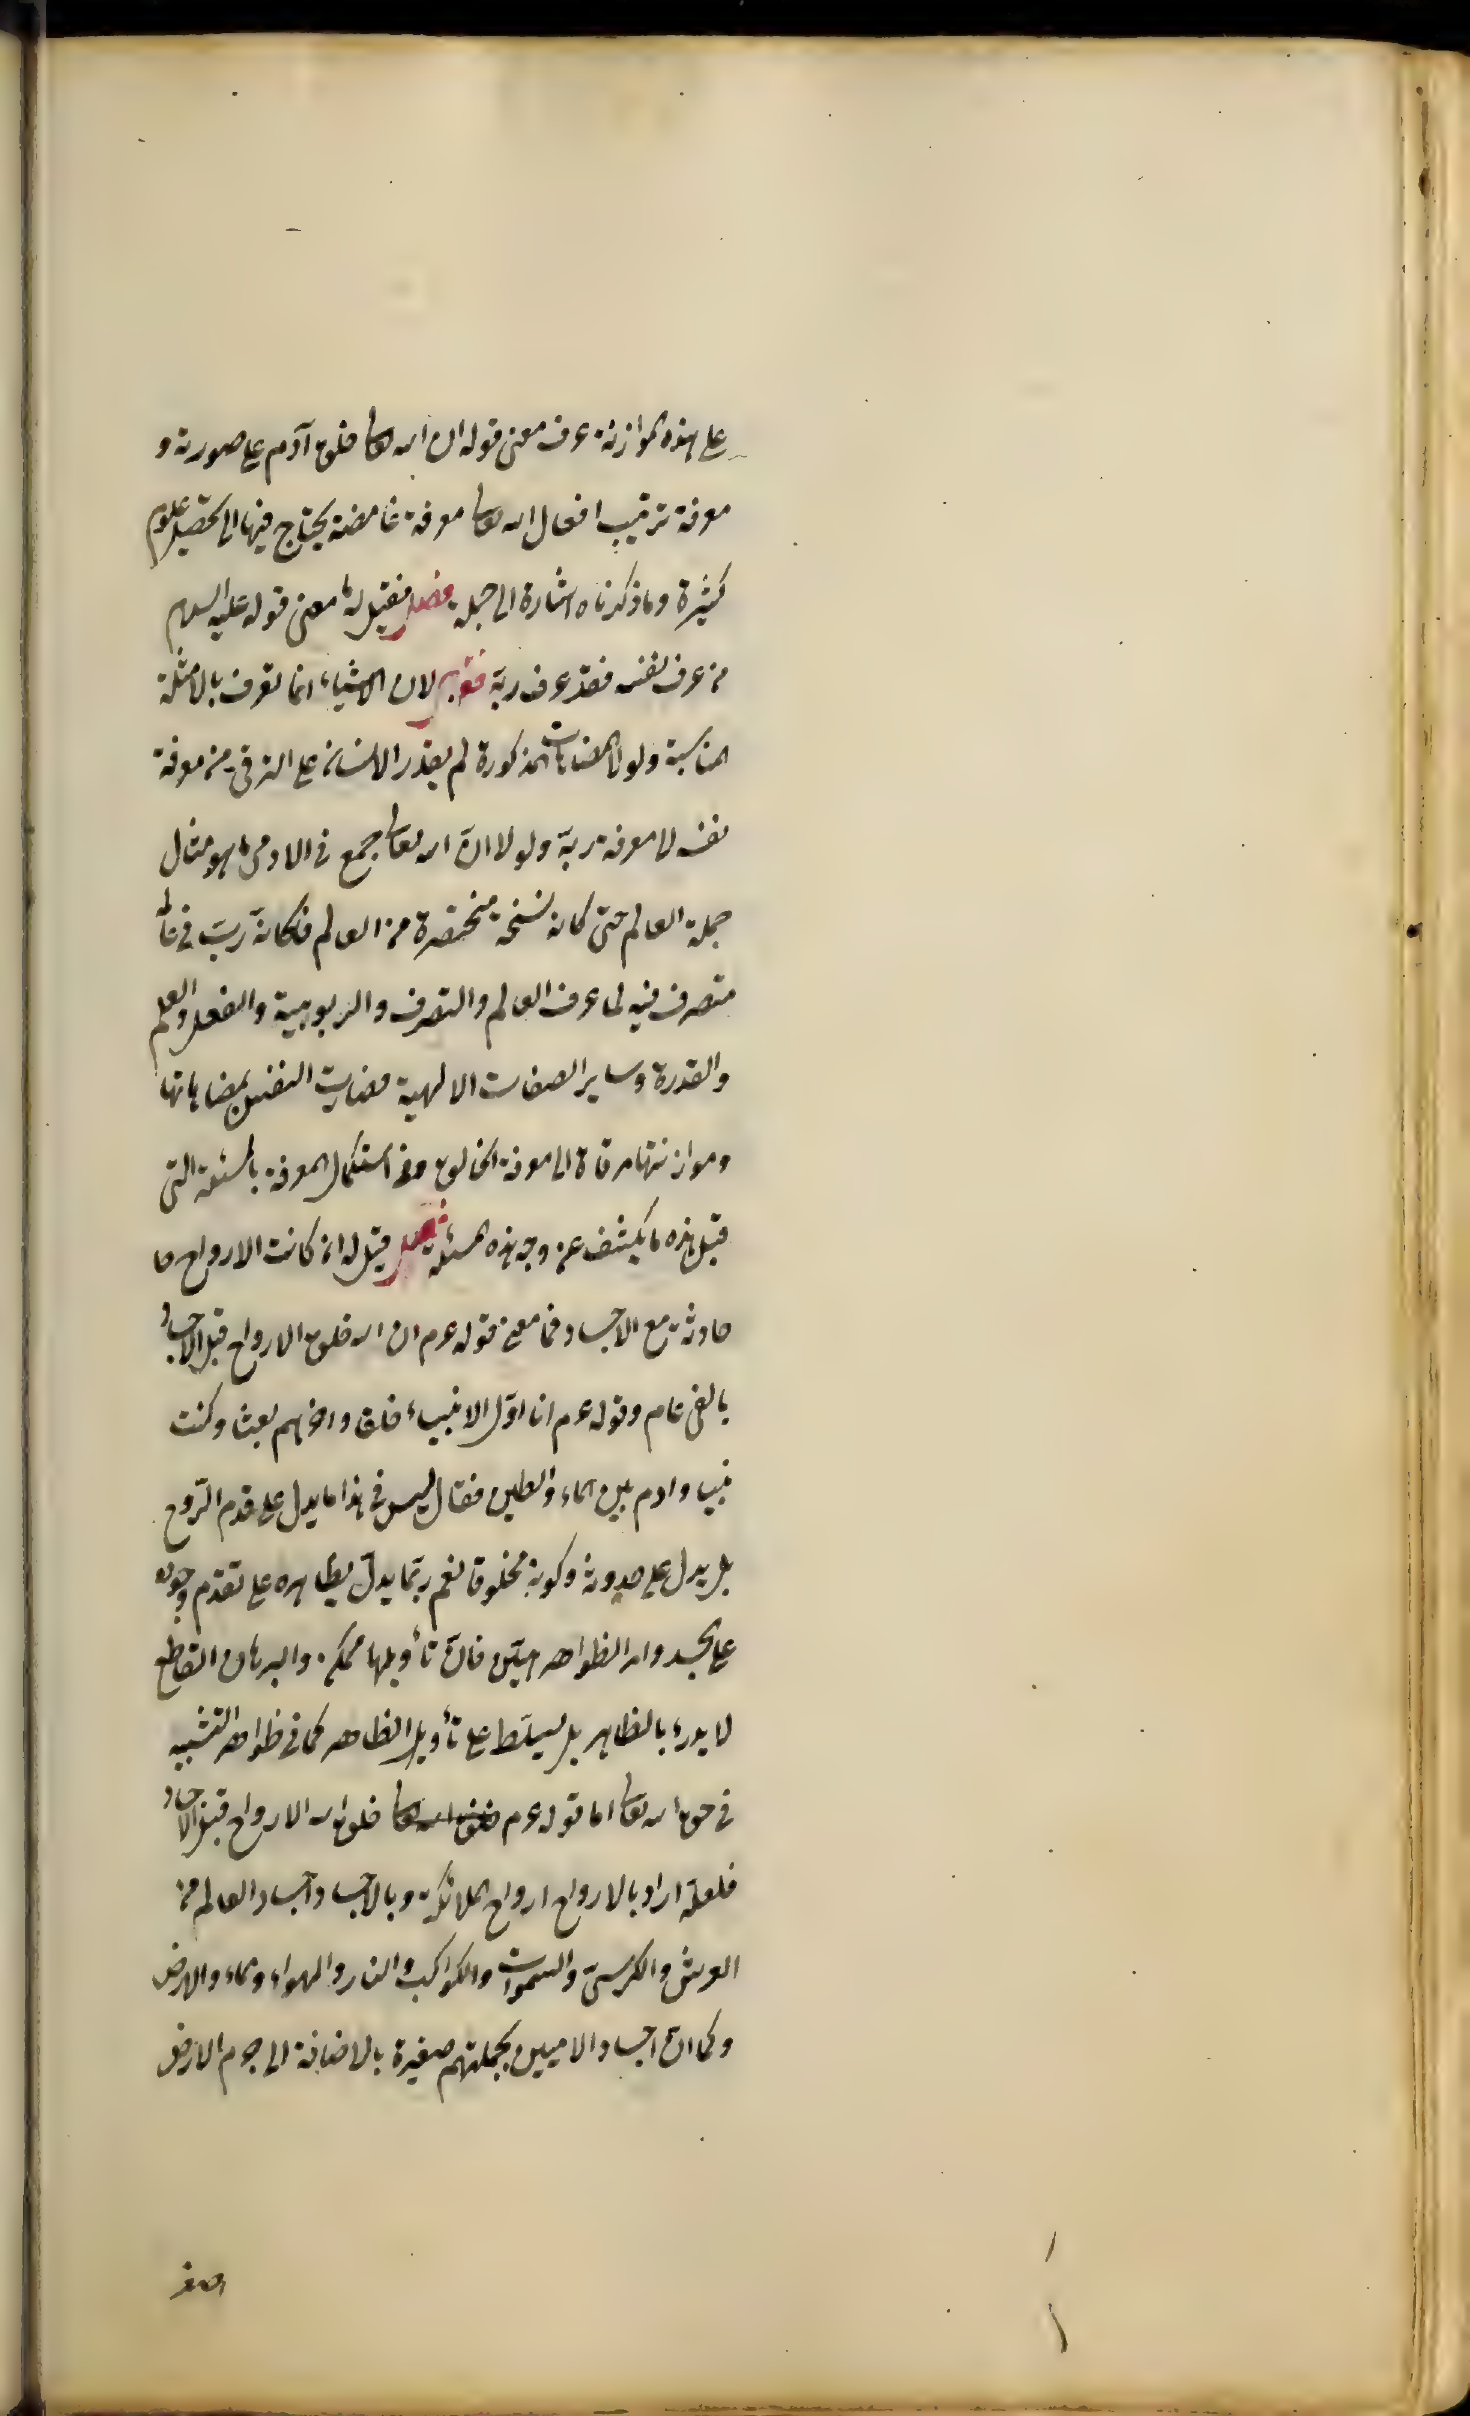 على هذه الموازنة عرف معنى قوله ان الله تعالى خلق آدم على صورته و
معرفة ترتيب افعال الله تعالى معرفة غامضة يحتاج فيها الى تحصيل علوم
كثيرة وما ذكرناه اشارة الى جملة فصل فقيل له ما معنى قوله عليه السلام
من عرف نفسه فقد عرف ربه لان الاشياء انما تعرف بالامثلة
المناسبة ولولا المضاهات المذكورة لم يقدر الانسان على الترقي من معرفة
نفسه الى معرفة ربه ولولا ان الله تعالى جمع في الادمي ما هو مثال
جملة العالم حتى كانه نسخة مختصرة من العالم فكانه رب في عالمه
متصرف فيه لما عرف العالم والتصرف والربوبية والفعل والعلم
والقدرة وساير الصفات الالهية فصارت النفس بمضاهاتها
وموازنتها مرقاة الى معرفة الخالق وفي استكمال المعرفة بالمسئلة التى
قبل هذه ما يكشف عن وجه هذه المسئلة فصل قيل له ان كانت الارواح حا
حادثة مع الاجساد فما معنى قوله عم ان الله خلق الارواح قبل الاجساد
بالفي عام وقوله عم انا اول الانبياء خلقا واخرهم بعثا وكنت
نبيا وادم بين الماء والطين فقال ليس في هذا ما يدل على قدم الروح
بل يدل على حدوثه وكونه مخلوقا نعم ربما يدل بظاهره على تقدم وجوده
على الجسد وامر الظواهر هين فان تأويلها ممكن والبرهان القاطع
لا يدرء بالظاهر بل يسلط على تأويل الظاهر كما في ظواهر التشبيه
في حق الله تعالى اما قوله عم خلق الله تعالى خلق الله الارواح قبل الاجساد
فلعله اراد بالارواح ارواح الملائكة وبالاجساد اجساد العالم من
العرش والكرسي والسموات والكواكب والنار والهواء والماء والارض
وكما ان اجساد الادميين بجملتهم صغيرة بالاضافة الى جرم الارض
اصغر